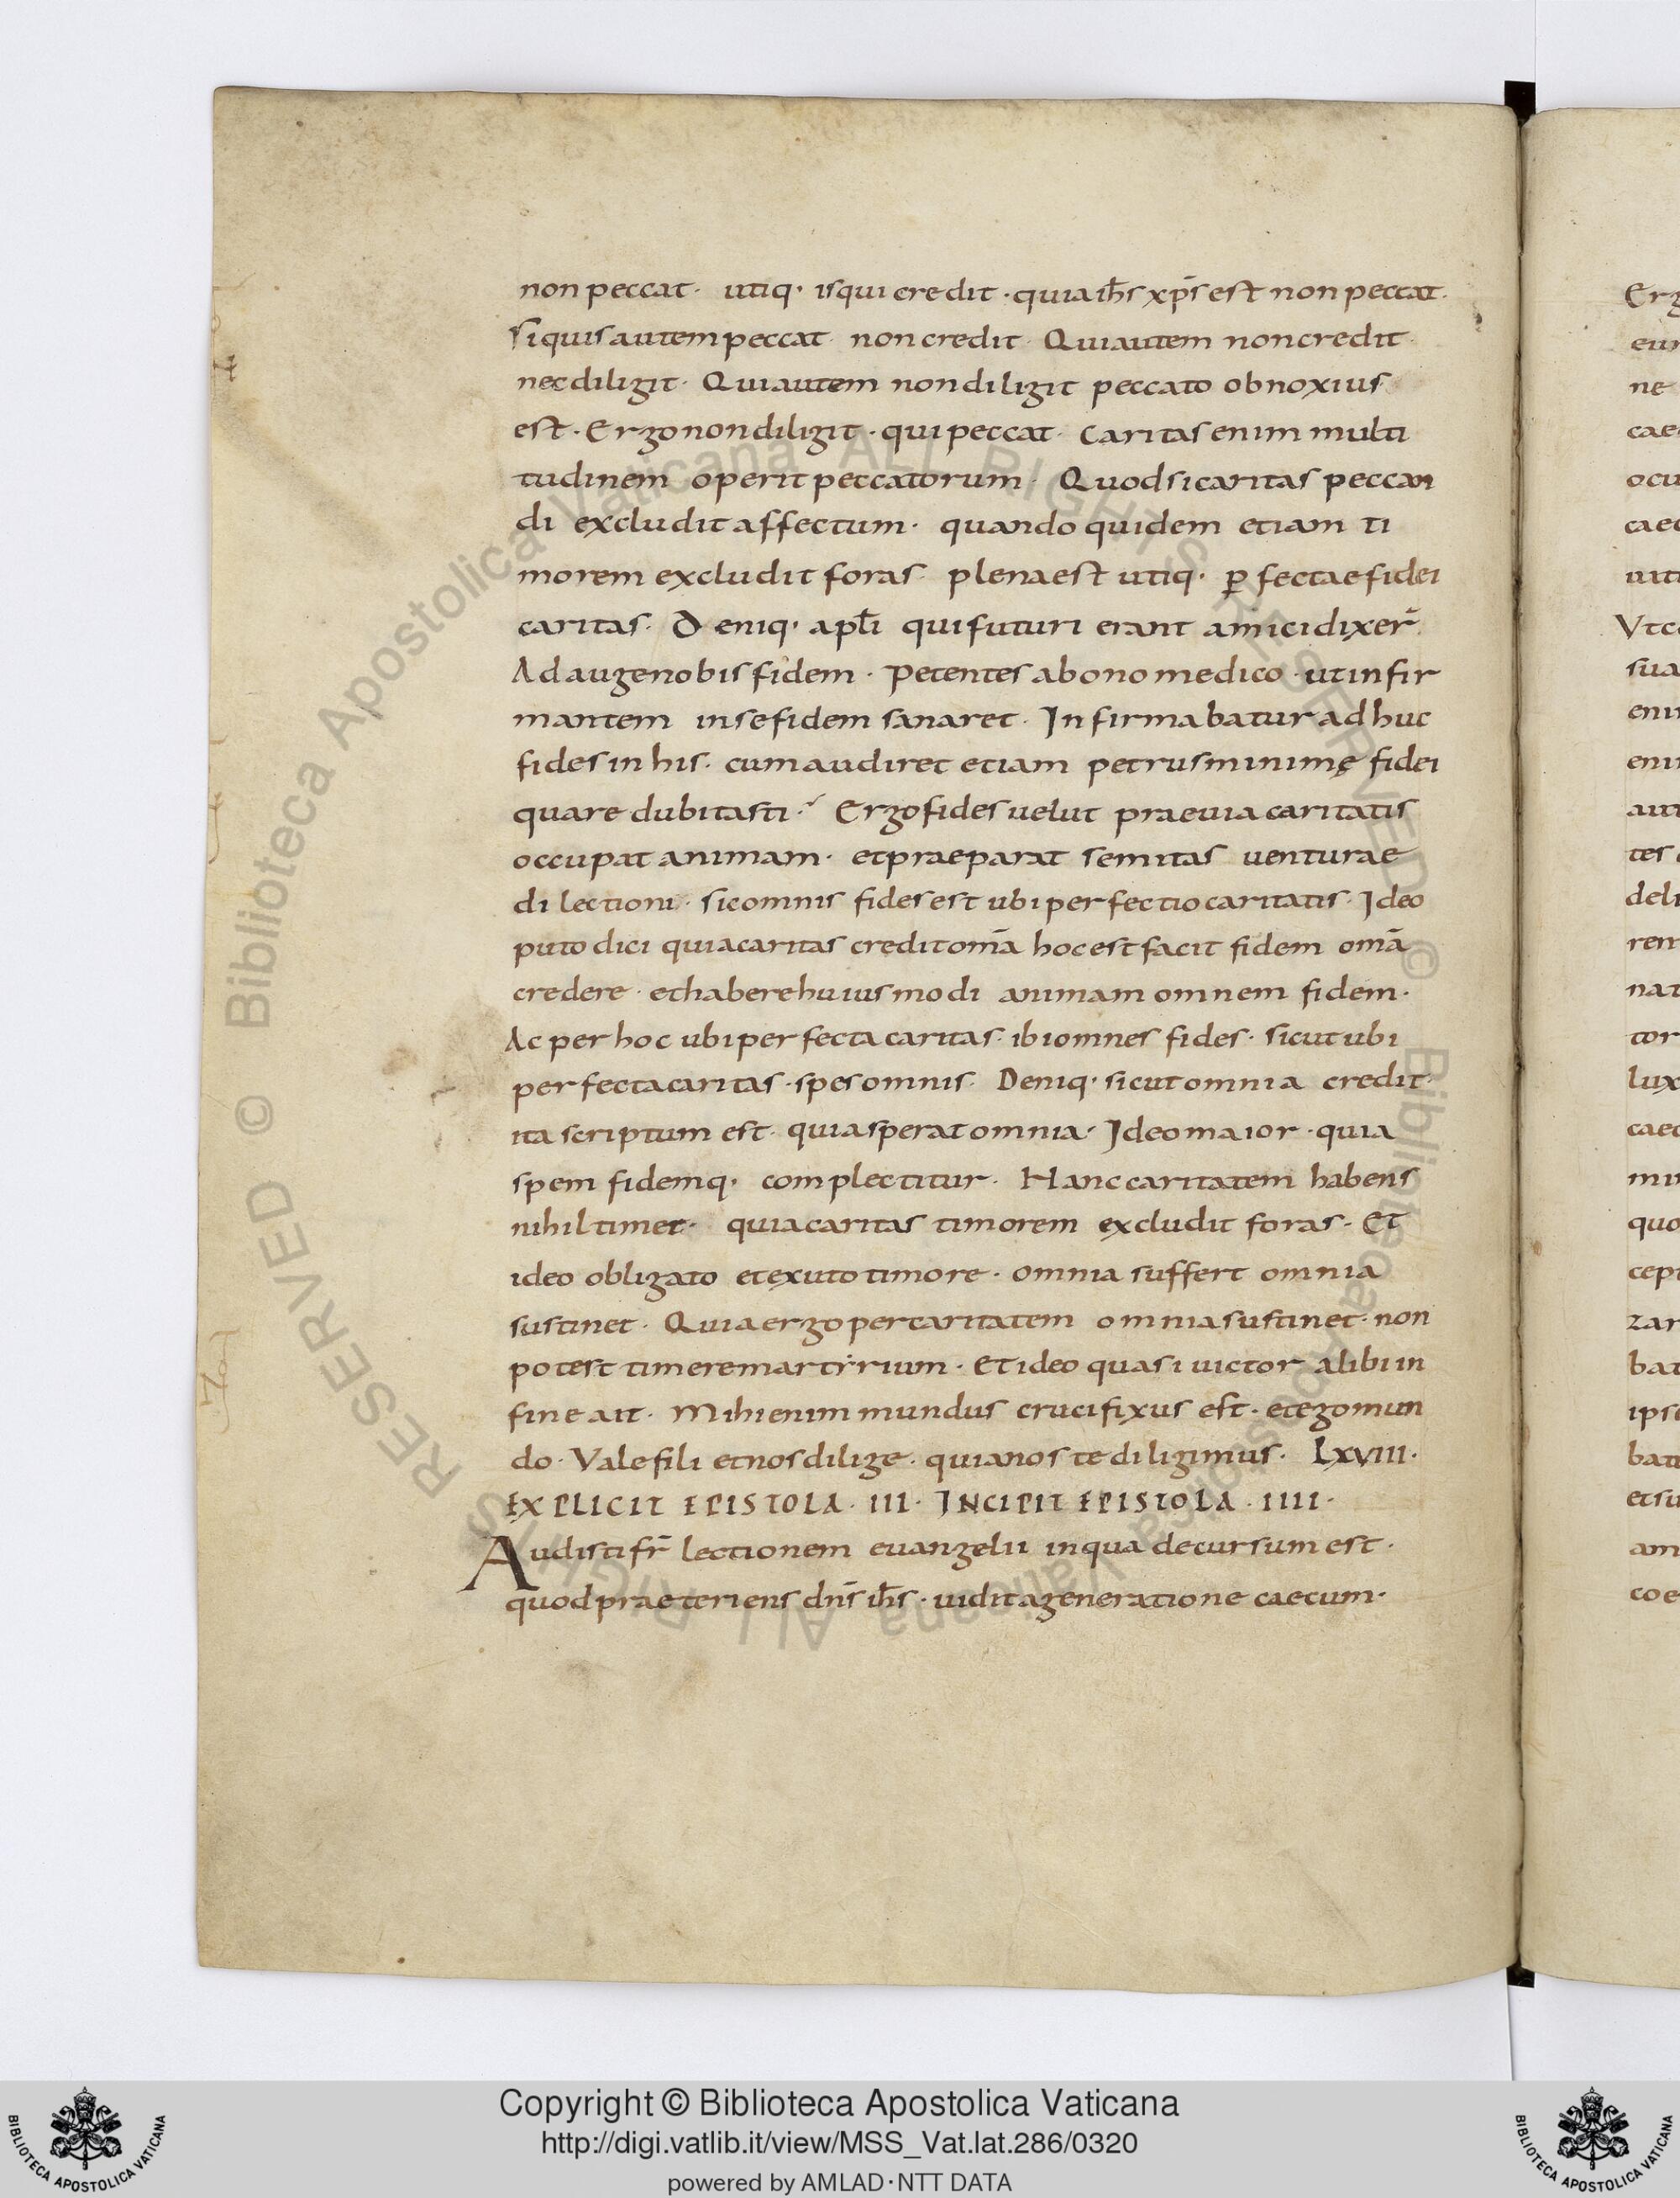 non peccat · utiq· is qui credit · quia ih̅s xp̅s est non peccat ·
si quis autem peccat · non credit · Qui autem non credit ·
nec diligit · Qui autem non diligit peccato obnoxius
est · Ergo non diligit · qui peccat · Caritas enim multi
tudinem operit peccatorum · Quod si caritas peccan
di excludit affectum · quando quidem etiam ti
morem excludit foras · plena est utiq· ꝑfectae fidei
caritas · Deniq· apl̅i qui futuri erant amici dixer̅
Adauge nobis fidem · Petentes a bono medico · ut infir
mantem in se fidem sanaret · Infirmabatur adhuc
fides in his · cum audiret etiam petrus minimę fidei
quare dubitasti · Ergo fides uelut praeuia caritatis
occupat animam · et praeparat semitas uenturae
dilectioni · sic omnis fides est ubi perfectio caritatis · Ideo
puto dici quia caritas credit oma̅ hoc est facit fidem oma̅
credere · et habere huiusmodi animam omnem fidem ·
Ac per hoc ubi perfecta caritas · ibi omnes fides · sicut ubi
perfecta caritas · spes omnis · Deniq· sicut omnia credit ·
ita scriptum est · quia sperat omnia · Ideo maior · quia
spem fidemq· complectitur · Hanc caritatem habens
nihil timet · quia caritas timorem excludit foras · Et
ideo obligato et exuto timore · omnia suffert omnia
sustinet · Quia ergo per caritatem omnia sustinet · non
potest timere martẏrium · Et ideo quasi uictor alibi in
fine ait · Mihi enim mundus crucifixus est · et ego mun
do · Vale fili et nos dilige · quia nos te diligimus · LXVIII ·
EXPLICIT EPISTOLA · III · INCIPIT EPISTOLA · IIII ·
Audisti fr̅ lectionem euangelii in qua decursum est ·
quod praeteriens dn̅s ih̅s · uidit a generatione caecum ·
Copyright © Biblioteca Apostolica Vaticana
http://digi.vatlib.it/view/MSS_Vat.lat.286/0320
powered by AMLAD·NTT DATA
BIBLIOTECA APOSTOLICA VATICANA
BIBLIOTECA APOSTOLICA VATICANA